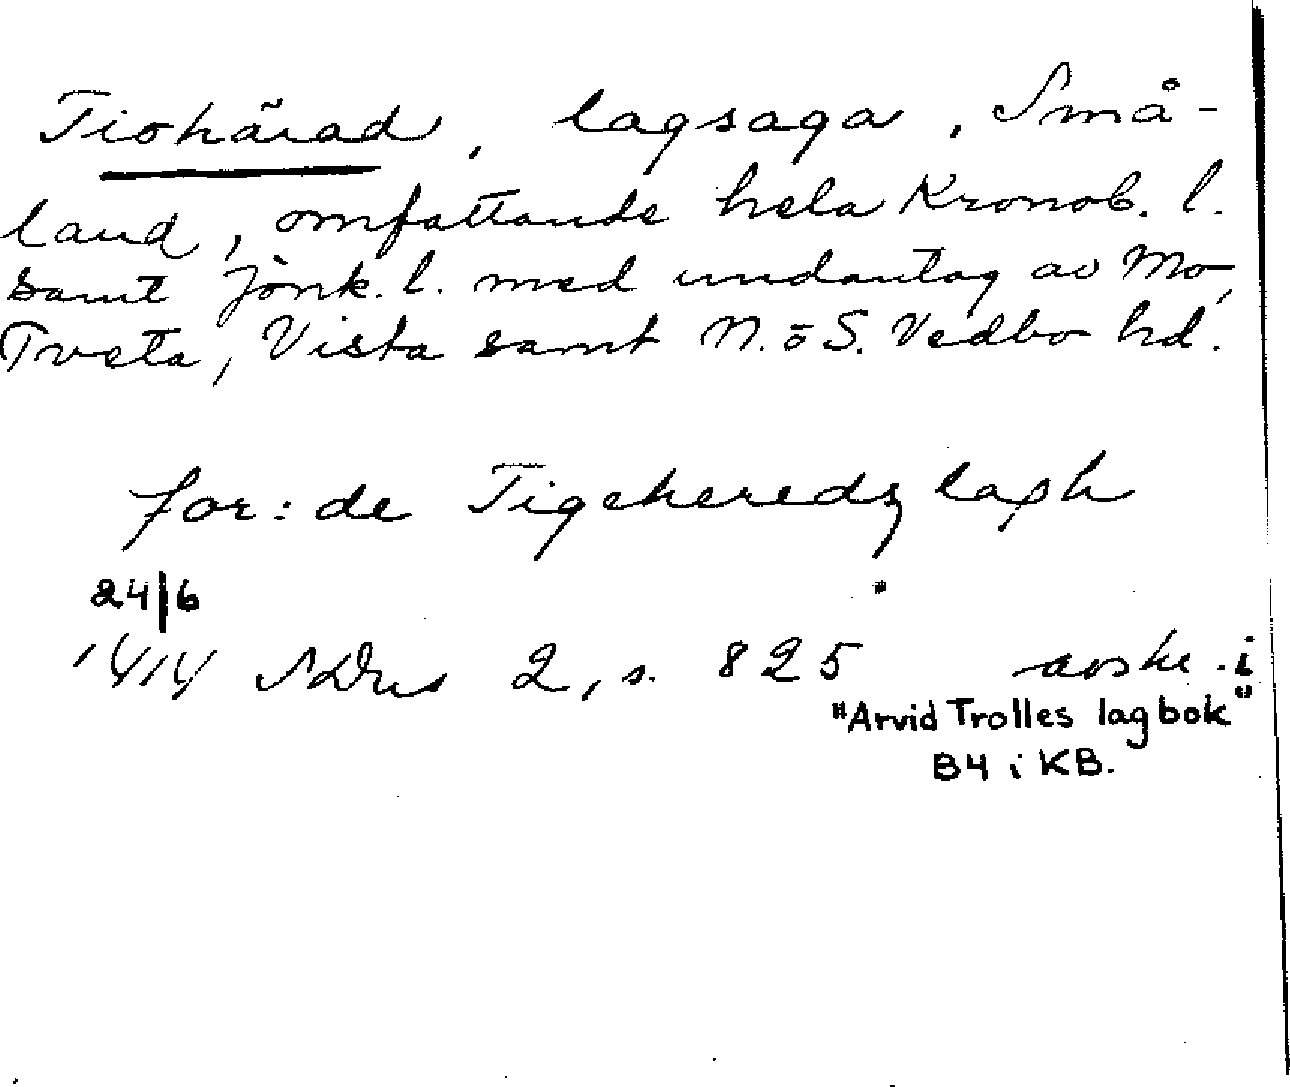 Tiohärad, lagsaga, Små-
land, omfattande hela Kronob. l.
samt Jönk. l. med undantag av Mo,
Tveta, Vista samt N. o S. Vedbo hd.
for: de Tigehered
24/6
1414 SDns 2, s. 825 avskr. i
"Arvid Trolles lagbok"
B4 i KB.